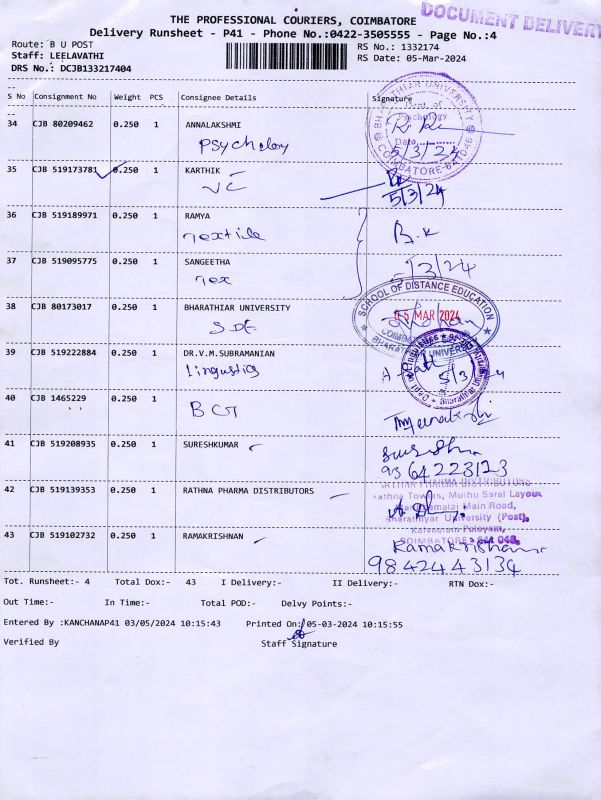 DOCUMENT DELIVERY
THE PROFESSIONAL COURIERS, COIMBATORE
Delivery Runsheet - P41 - Phone No.:0422-3505555 - Page No.:4
Route: B U POST
Staff: LEELAVATHI
DRS No.: DCJB133217404
RS No.: 1332174
RS Date: 05-Mar-2024
S No Consignment No Weight PCS Consignee Details Signature
34 CJB 80209462 0.250 1 ANNALAKSHMI
BHARATHIAR UNIVERSITY
Dept. of
Psychology
Date
5/3/24
COIMBATORE-641046
35 CJB 519173781 0.250 1 KARTHIK
VC
5/3/24
36 CJB 519189971 0.250 1 RAMYA
Textile
B.K
37 CJB 519095775 0.250 1 SANGEETHA
Tex
5/3/24
38 CJB 80173017 0.250 1 BHARATHIAR UNIVERSITY
SDE
SCHOOL OF DISTANCE EDUCATION
05 MAR 2024
BHARATHIAR UNIVERSITY
39 CJB 519222884 0.250 1 DR.V.M.SUBRAMANIAN
5/3/24
40 CJB 1465229 0.250 1
BCT
41 CJB 519208935 0.250 1 SURESHKUMAR
9364223123
42 CJB 519139353 0.250 1 RATHNA PHARMA DISTRIBUTORS
Rathna Towers, Muthu Saral Layout
Main Road,
Bharathiyar University (Post),
COIMBATORE - 641 046.
43 CJB 519102732 0.250 1 RAMAKRISHNAN
Ramakrishnan
9842443134
Tot. Runsheet:- 4 Total Dox:- 43 I Delivery:- II Delivery:- RTN Dox:-
Out Time:- In Time:- Total POD:- Delvy Points:-
Entered By :KANCHANAP41 03/05/2024 10:15:43 Printed On:/05-03-2024 10:15:55
Verified By Staff Signature